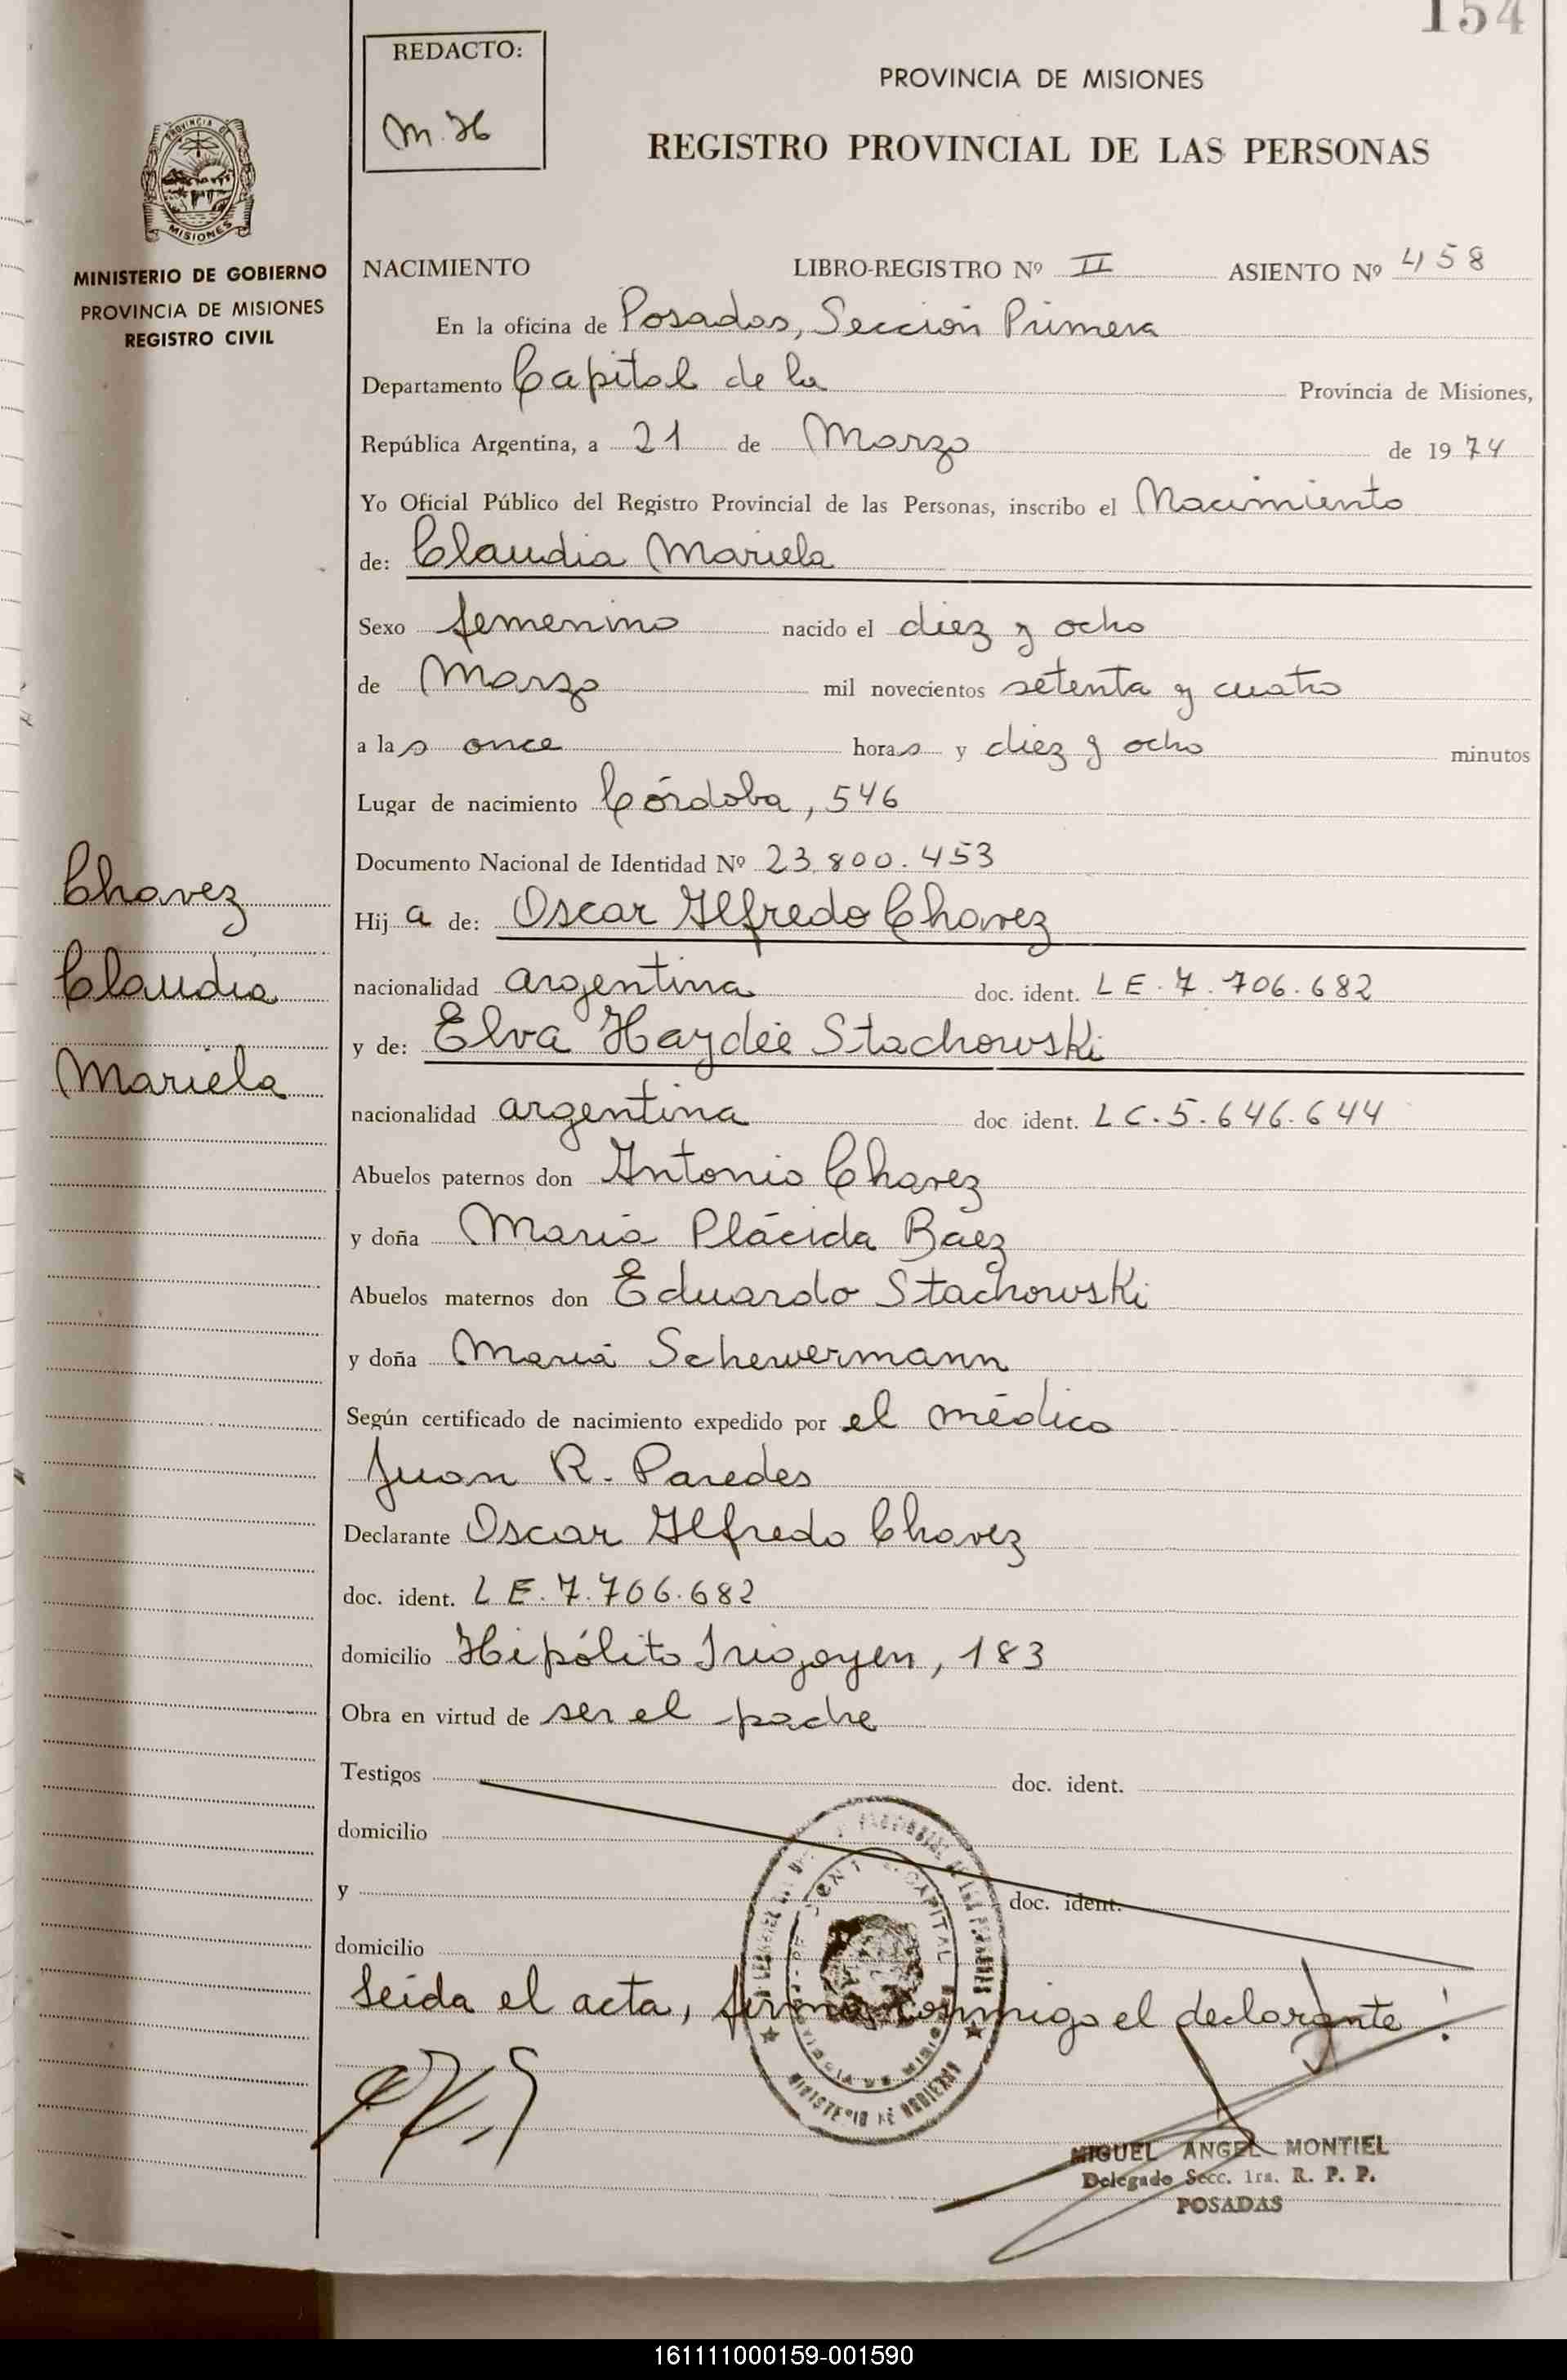 154
REDACTO:
M.H
PROVINCIA DE MISIONES
REGISTRO PROVINCIAL DE LAS PERSONAS
PROVINCIA DE
MISIONES
MINISTERIO DE GOBIERNO
PROVINCIA DE MISIONES
REGISTRO CIVIL
NACIMIENTO LIBRO-REGISTRO Nº II ASIENTO Nº 458
En la oficina de Posadas, Sección Primera
Departamento Capital de la Provincia de Misiones,
República Argentina, a 21 de Marzo de 1974
Yo Oficial Público del Registro Provincial de las Personas, inscribo el Nacimiento
de: Claudia Mariela
Sexo femenino nacido el diez y ocho
de Marzo mil novecientos setenta y cuatro
a las once horas y diez y ocho minutos
Lugar de nacimiento Córdoba, 546
Documento Nacional de Identidad Nº 23.800.453
Chavez
Hija de: Oscar Alfredo Chavez
Claudia
nacionalidad argentina doc. ident. LE.7.706.682
y de: Elva Haydée Stachowski
Mariela
nacionalidad argentina doc ident. LC.5.646.644
Abuelos paternos don Antonio Chavez
y doña María Plácida Baez
Abuelos maternos don Eduardo Stachowski
y doña María Schewermann
Según certificado de nacimiento expedido por el médico
Juan R. Paredes
Declarante Oscar Alfredo Chavez
doc. ident. LE.7.706.682
domicilio Hipólito Irigoyen, 183
Obra en virtud de ser el padre
Testigos doc. ident.
domicilio
y doc. ident.
domicilio
Leída el acta, firma conmigo el declarante
CAPITAL
MINISTERIO DE GOBIERNO
MIGUEL ANGEL MONTIEL
Delegado Secc. 1ra. R. P. P.
POSADAS
161111000159-001590